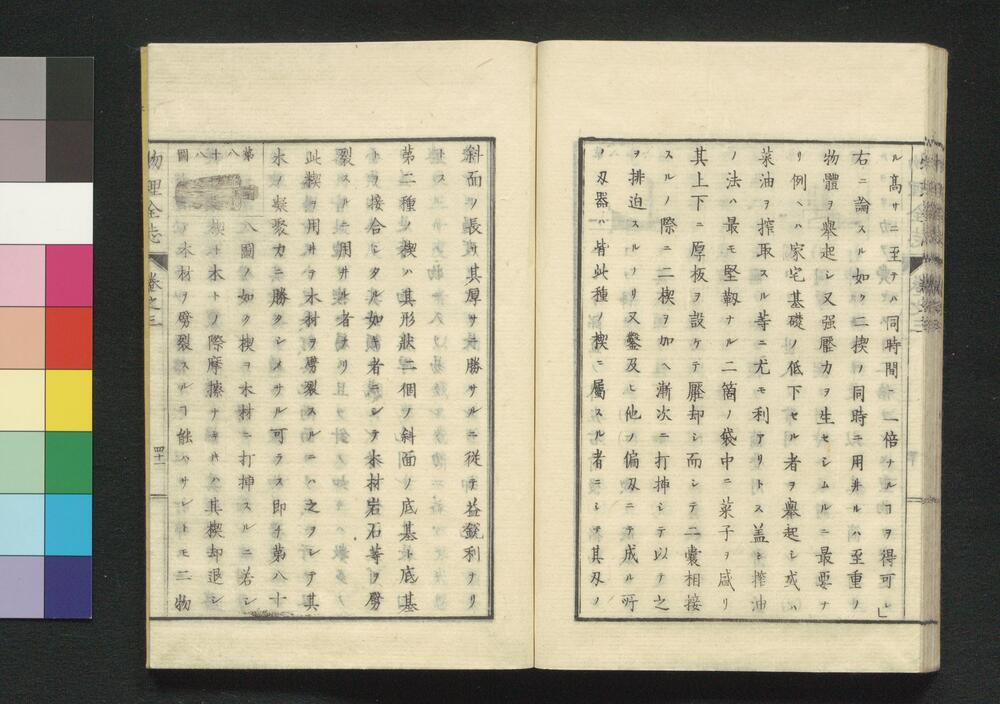 ル高サニ至ヲハ同時間ニ一倍ナルヿヲ得可シ」
右ニ論スル如ク二楔ノ同時ニ用井ルハ至重ノ
物體ヲ擧起シ又强壓力ヲ生セシムルニ最要ナ
リ例ヘハ家宅基礎ノ低下セル者ヲ擧起シ或ハ
菜油ヲ搾取スル等ニ尤モ利アリトス盖シ搾油
ノ法ハ最モ堅靱ナル二箇ノ袋中ニ菜子ヲ咸リ
其上下ニ厚板ヲ設ケテ壓却シ而シテ二囊相接
スルノ際ニ二楔ヲ加ヘ漸次ニ打揷シテ以テ之
ヲ排迫スルノリ又鑿及ヒ他ノ偏刄ニテ成ル所
ノ刄器ハ皆此種ノ楔ニ屬スル者ニシテ其刄ノ
斜面ノ長サ其厚サニ勝サルニ從テ益銳利ナリ
トス
第二種ノ楔ハ其形狀二個ノ斜面ノ底基ト底基
トヲ接合シタル如キ者ニシテ木材岩石等ヲ劈
裂スルニ用井ル者ナリ
此楔ヲ用井テ木材ヲ劈裂スルニハ之ヲシテ其
木ノ凝聚力ニ勝タシメサル可ラス即チ第八十
八圖ノ如ク楔ヲ木材ニ打揷スルニ若シ
楔ト木トノ際摩擦ナキキハ其楔却退シ
テ木材ヲ劈裂スルヿ能ハサレトモ二物
第八十八圖
物理全志
卷之三
四十二